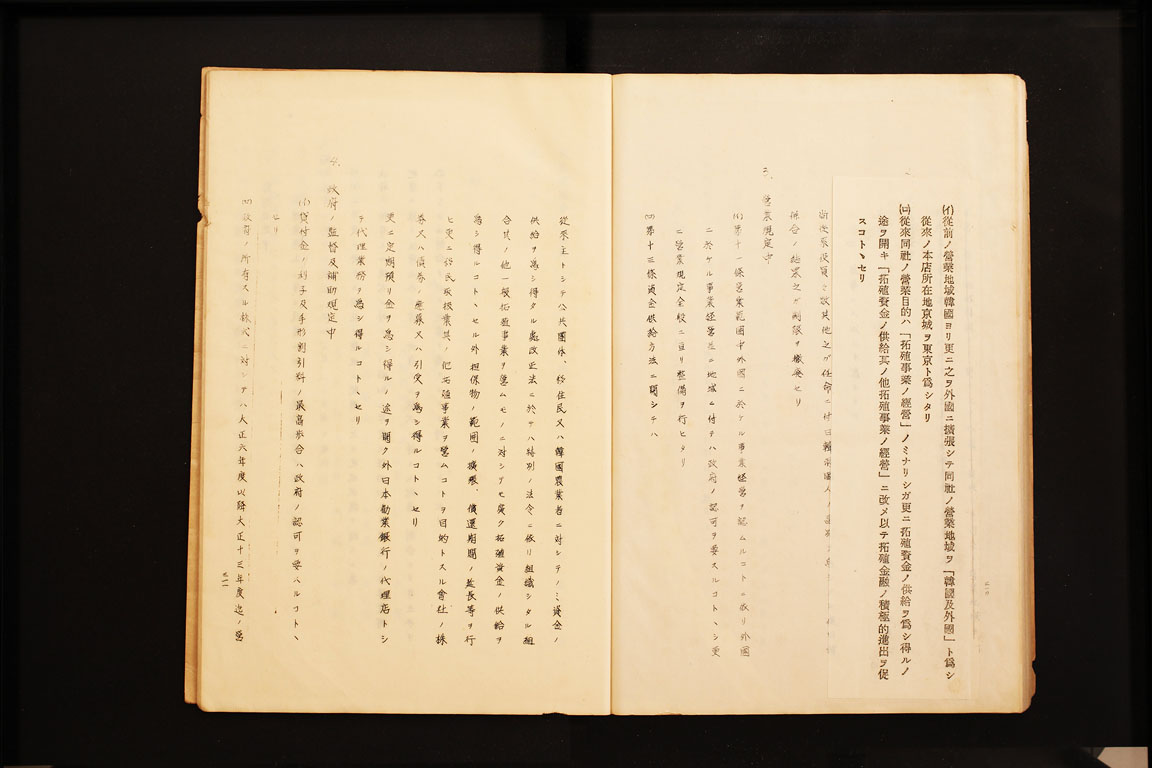 (イ)從前ノ營業地域韓國ヨリ更ニ之ヲ外國ニ擴張シテ同社ノ營業地域ヲ「韓國及外國」ト爲シ
從來ノ本店所在地京城ヲ東京ト爲シタリ
(ロ)從來同社ノ營業目的ハ「拓殖事業ノ經營」ノミナリシガ更ニ拓殖資金ノ供給ヲ爲シ得ルノ
途ヲ開キ「拓殖資金ノ供給其ノ他拓殖事業ノ經營」ニ改メ以テ拓殖金融ノ積極的進出ヲ促
スコトヽセリ
併合ノ結果之ガ制限ヲ撤廃セリ
三、營業規定中
(イ)第十一條營業範圍中外國ニ於ケル事業經營ヲ認ムルコトニ依リ外國
ニ於ケル事業経営並ニ地域ニ付テハ政府ノ認可ヲ要スルコトヽシ更
ニ營業規定全般ニ亘リ整備ヲ行ヒタリ
(ロ)第十三條資金供給方法ニ関シテハ
從來主トシテ公共團体、移住民又ハ韓國農業者ニ対シテノミ資金ノ
供給ヲ為シ得タル処改正法ニ於テハ特別ノ法令ニ依リ組織シタル組
合其ノ他一般拓殖事業ヲ営ムモノニ対シテモ廣ク拓殖資金ノ供給ヲ
為シ得ルコトヽセル外担保物ノ範囲ノ擴張、償還期間ノ延長等ヲ行
ヒ更ニ移民取扱業其ノ他拓殖事業ヲ営ムコトヲ目的トスル會社ノ株
券又ハ債券ノ應募又ハ引受ヲ為シ得ルコトヽセリ
更ニ定期預リ金ヲ為シ得ルノ途ヲ開ク外日本勧業銀行ノ代理店トシ
テ代理業務ヲ為シ得ルコトヽセリ
政府ノ監督及補助規定中
(イ)貸付金ノ利子及手形割引料ノ最高歩合ハ政府ノ認可ヲ要スルコトヽ
セリ
(ロ)政府ノ所有スル株式ニ対シテハ大正六年度以降大正十三年度迄ノ營